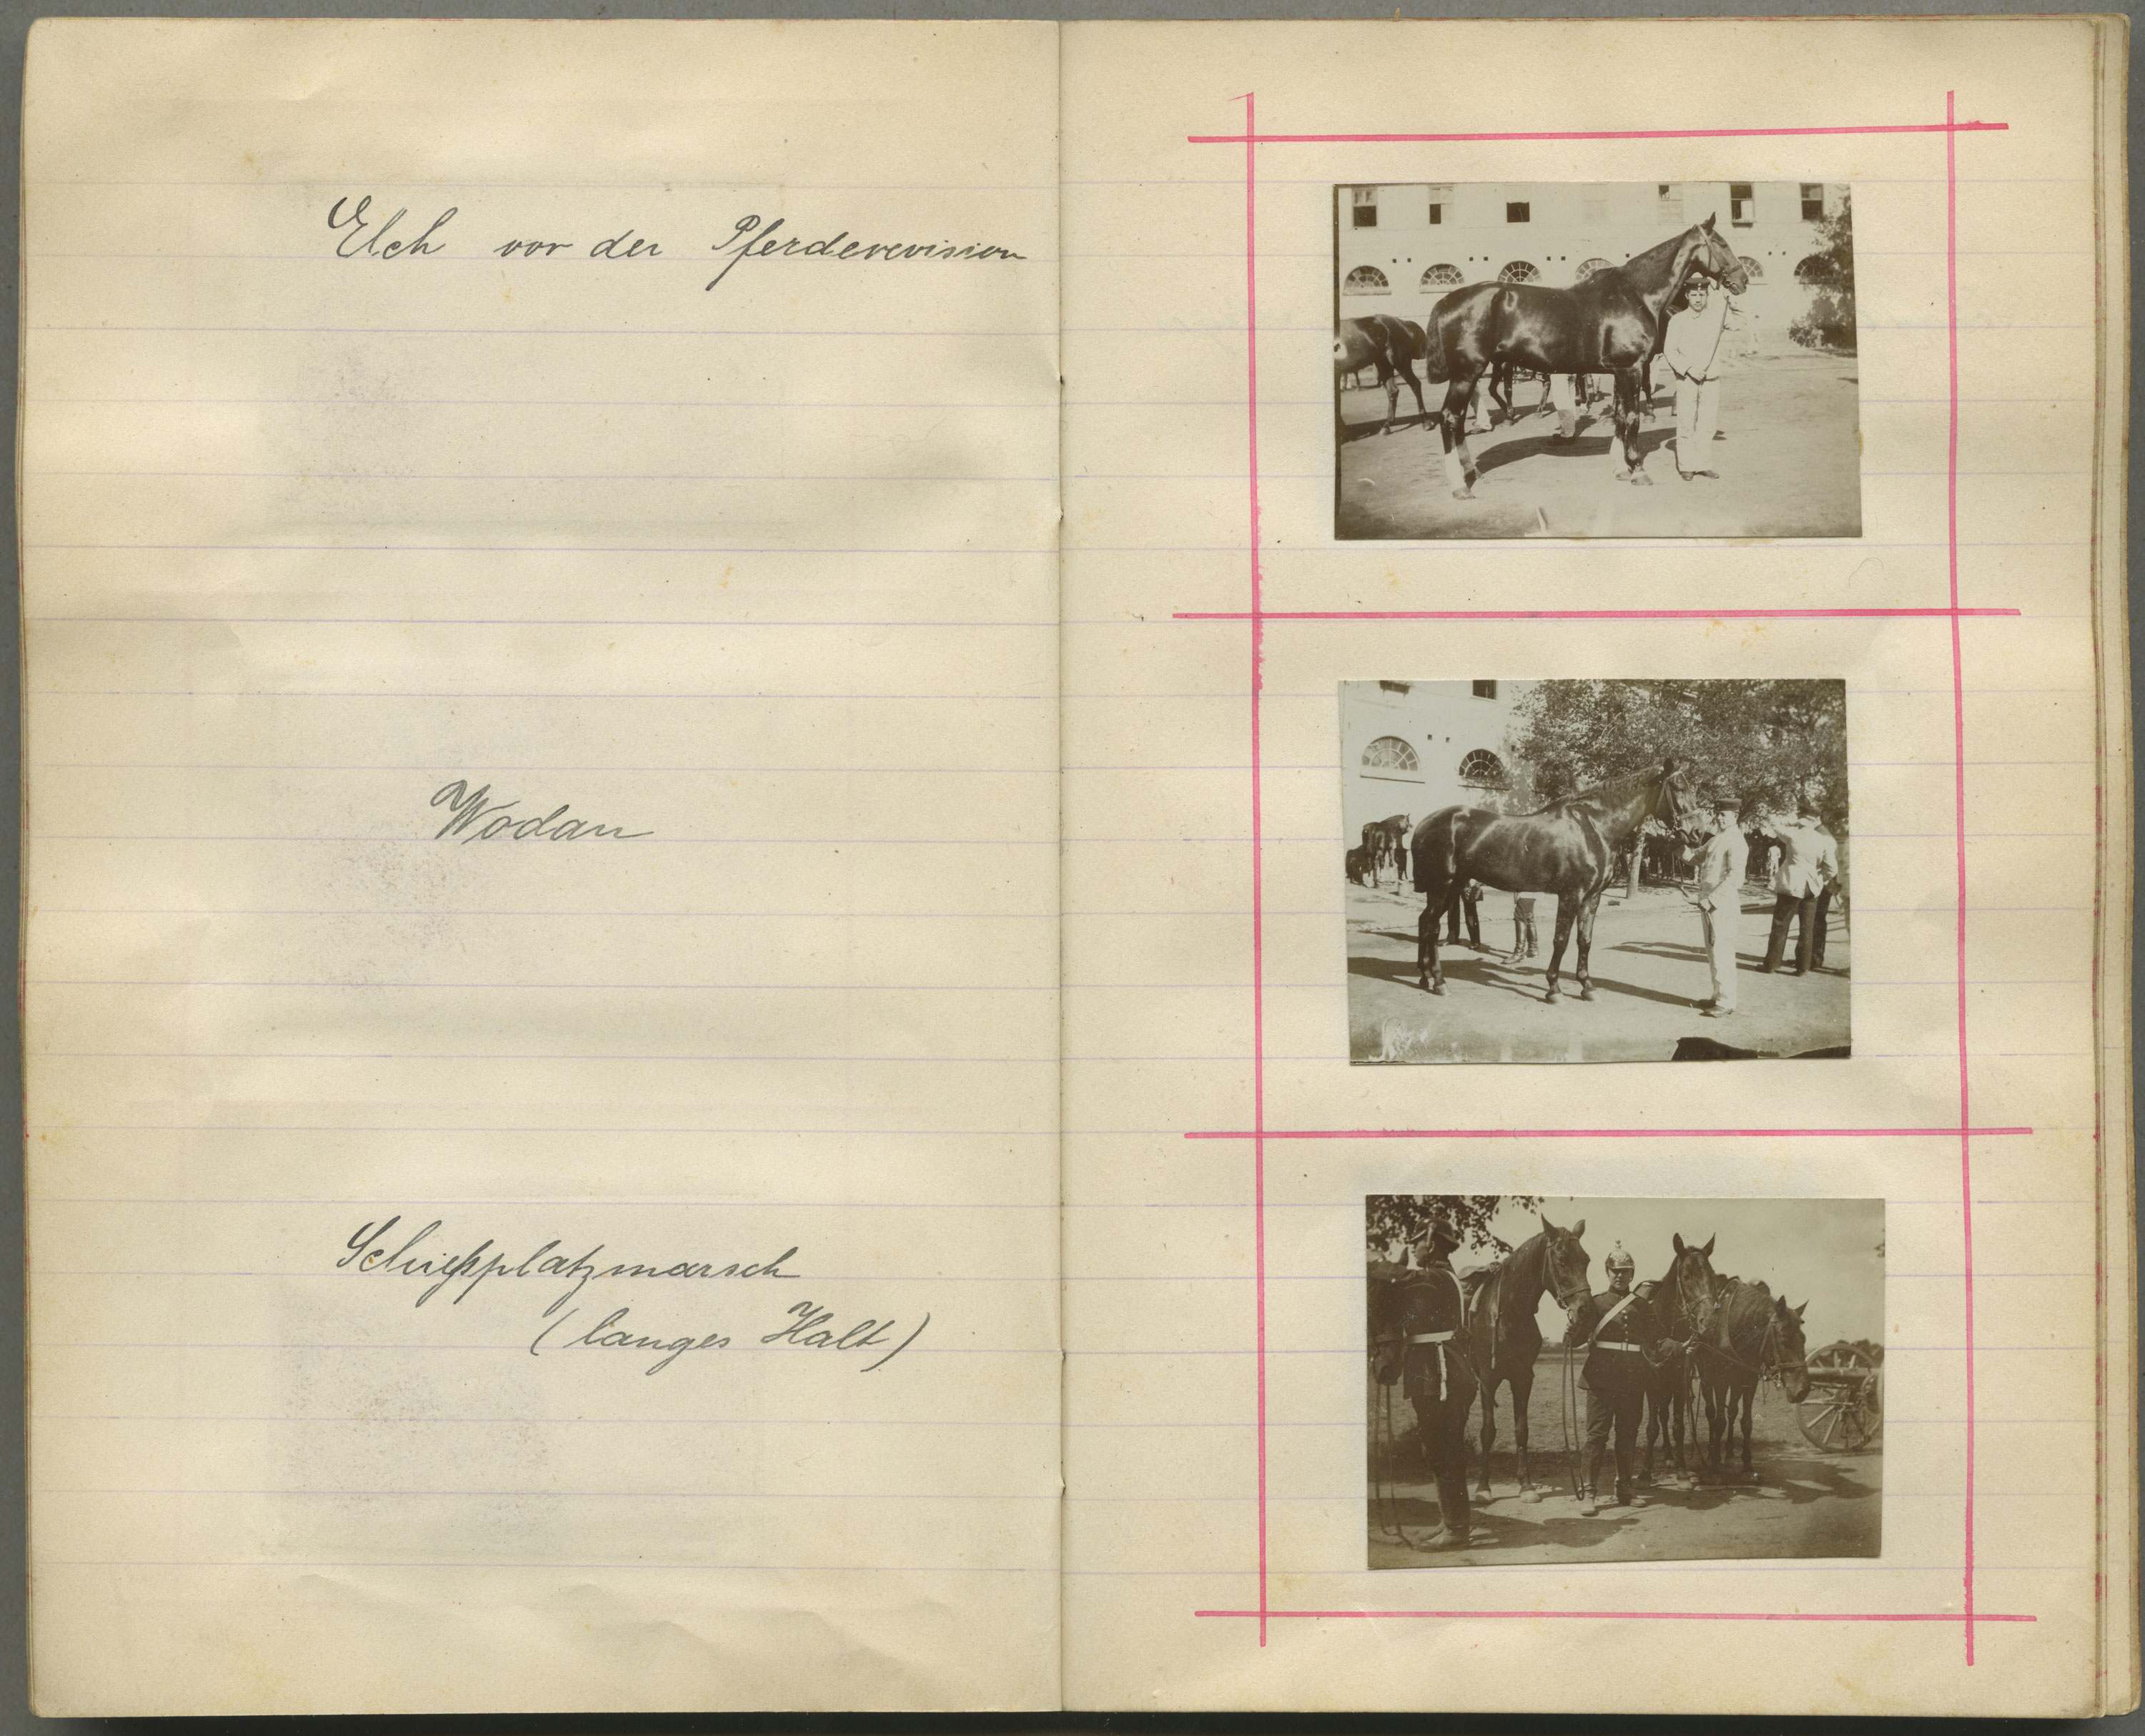 Elch vor der Pferderevision
Wodan
Schießplatzmarsch
(langes Halt)